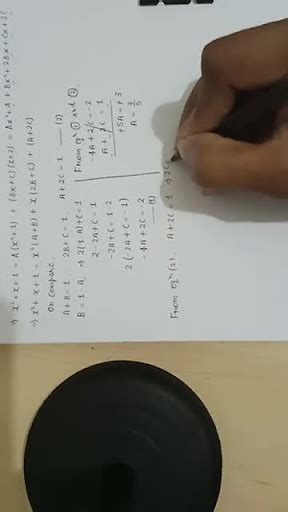 ⇒ x²+x+1 = A(x²+1) + (Bx+C)(x+2) = Ax²+A + Bx²+2Bx+Cx+2C
⇒ x²+x+1 = x²(A+B) + x(2B+C) + (A+2C)
On compare,
A+B=1, 2B+C=1, A+2C=1 —(2)
B=1-A, ⇒ 2(1-A)+C=1
2-2A+C=1
-2A+C=1-2
2(-2A+C=-1)
-4A+2C=-2
—(1)
From eqⁿ ① and ②,
-4A+2C=-2
A+2C=1
+5A=+3
A=3/5
From eqⁿ (2), A+2C=1 ⇒ 2C